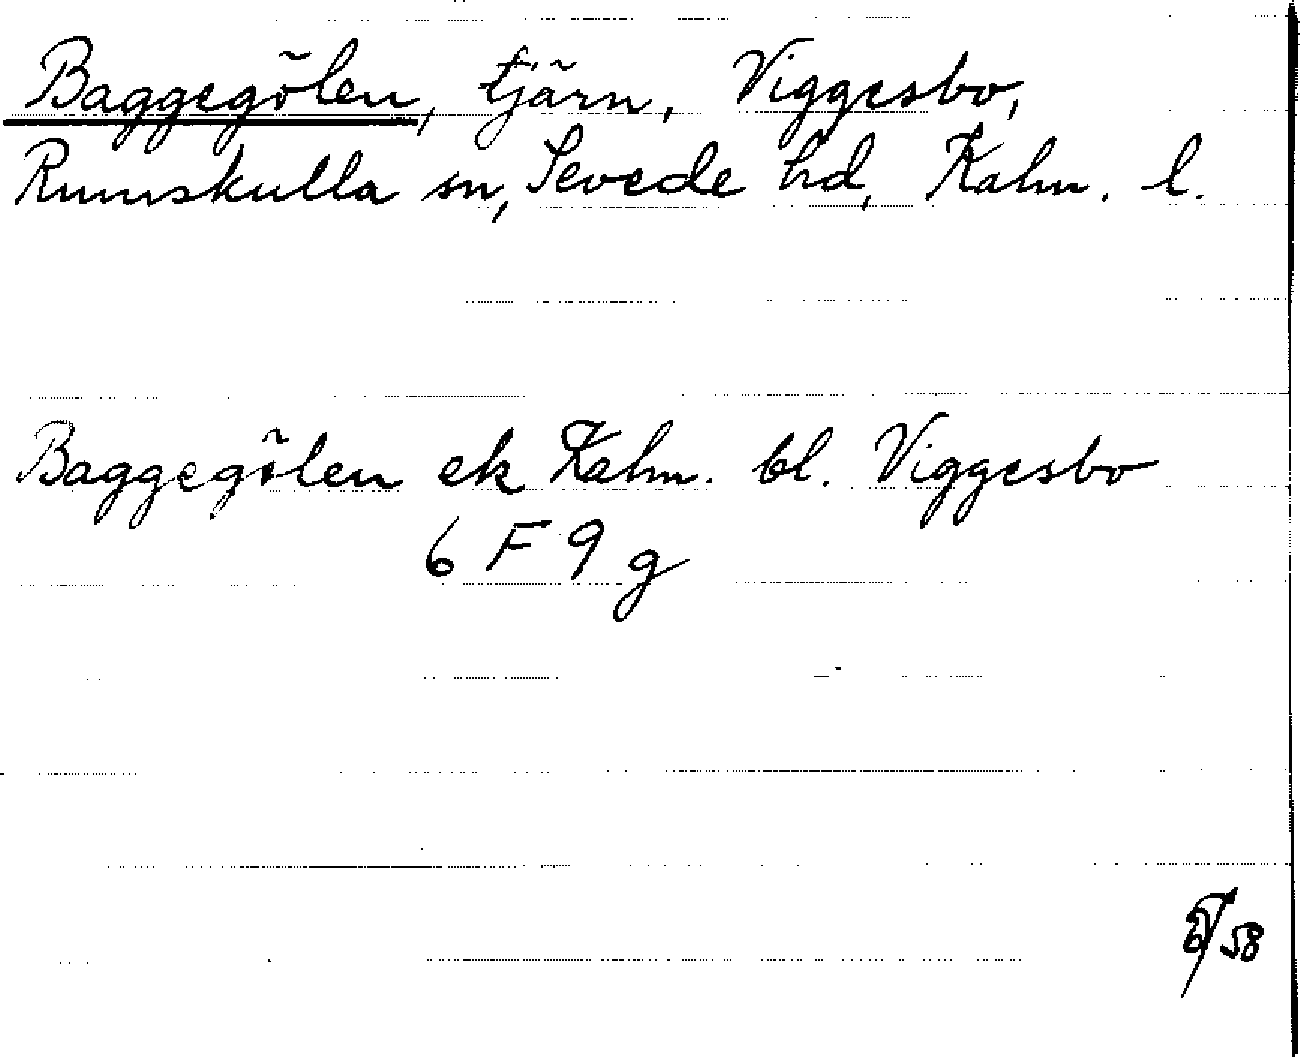 Baggegölen, tjärn, Viggesbo,
Rumskulla sn, Sevede hd, Kalm. l.
Baggegölen ek Kalm. bl. Viggesbo
6 F 9 g
58